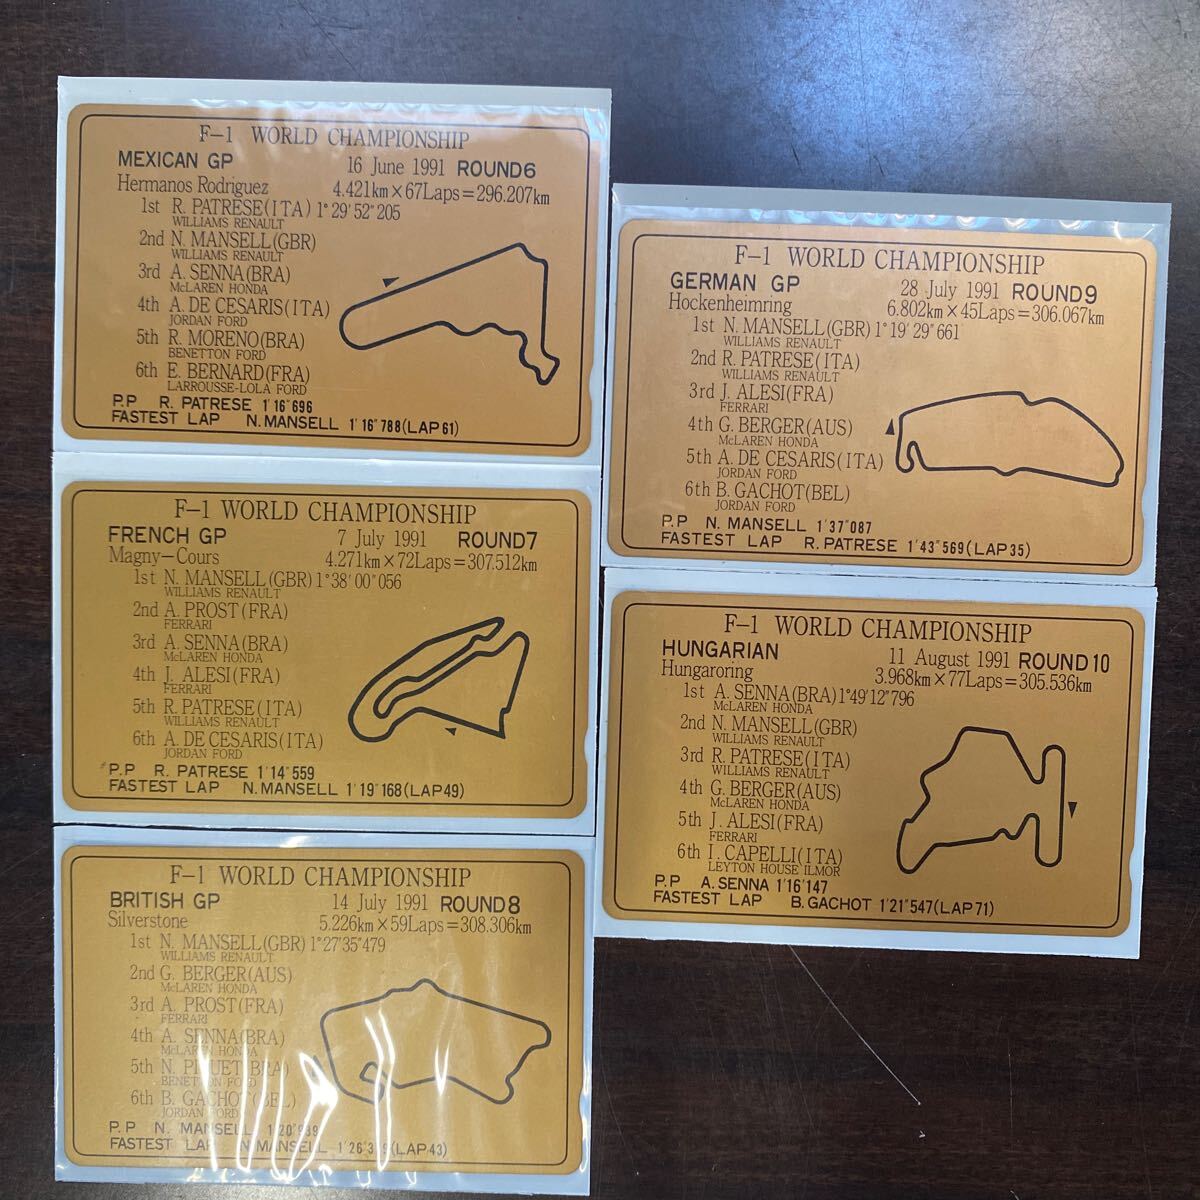 F-1 WORLD CHAMPIONSHIP
MEXICAN GP 16 June 1991 ROUND6
Hermanos Rodriguez 4.421km×67Laps=296.207km
1st R. PATRESE(ITA) 1°29'52"205
WILLIAMS RENAULT
2nd N. MANSELL(GBR)
WILLIAMS RENAULT
3rd A. SENNA(BRA)
McLAREN HONDA
4th A. DE CESARIS(ITA)
JORDAN FORD
5th R. MORENO(BRA)
BENETTON FORD
6th E. BERNARD(FRA)
LARROUSSE-LOLA FORD
P.P R. PATRESE 1'16"696
FASTEST LAP N.MANSELL 1'16"788(LAP61)
F-1 WORLD CHAMPIONSHIP
FRENCH GP 7 July 1991 ROUND7
Magny-Cours 4.271km×72Laps=307.512km
1st N. MANSELL(GBR) 1°38'00"056
WILLIAMS RENAULT
2nd A. PROST(FRA)
FERRARI
3rd A. SENNA(BRA)
McLAREN HONDA
4th J. ALESI(FRA)
FERRARI
5th R. PATRESE(ITA)
WILLIAMS RENAULT
6th A. DE CESARIS(ITA)
JORDAN FORD
P.P R. PATRESE 1'14"559
FASTEST LAP N.MANSELL 1'19"168(LAP49)
F-1 WORLD CHAMPIONSHIP
BRITISH GP 14 July 1991 ROUND8
Silverstone 5.226km×59Laps=308.306km
1st N. MANSELL(GBR) 1°27'35"479
WILLIAMS RENAULT
2nd G. BERGER(AUS)
McLAREN HONDA
3rd A. PROST(FRA)
FERRARI
4th A. SENNA(BRA)
McLAREN HONDA
5th N. PIQUET(BRA)
BENETTON FORD
6th B. GACHOT(BEL)
JORDAN FORD
P.P N. MANSELL 1'20"939
FASTEST LAP N.MANSELL (LAP43)
F-1 WORLD CHAMPIONSHIP
GERMAN GP 28 July 1991 ROUND9
Hockenheimring 6.802km×45Laps=306.067km
1st N. MANSELL(GBR) 1°19'29"661
WILLIAMS RENAULT
2nd R. PATRESE(ITA)
WILLIAMS RENAULT
3rd J. ALESI(FRA)
FERRARI
4th G. BERGER(AUS)
McLAREN HONDA
5th A. DE CESARIS(ITA)
JORDAN FORD
6th B. GACHOT(BEL)
JORDAN FORD
P.P N. MANSELL 1'37"087
FASTEST LAP R.PATRESE 1'43"569(LAP35)
F-1 WORLD CHAMPIONSHIP
HUNGARIAN 11 August 1991 ROUND10
Hungaroring 3.968km×77Laps=305.536km
1st A. SENNA(BRA) 1°49'12"796
McLAREN HONDA
2nd N. MANSELL(GBR)
WILLIAMS RENAULT
3rd R. PATRESE(ITA)
WILLIAMS RENAULT
4th G. BERGER(AUS)
McLAREN HONDA
5th J. ALESI(FRA)
FERRARI
6th I. CAPELLI(ITA)
LEYTON HOUSE ILMOR
P.P A.SENNA 1'16"147
FASTEST LAP B.GACHOT 1'21"547(LAP71)